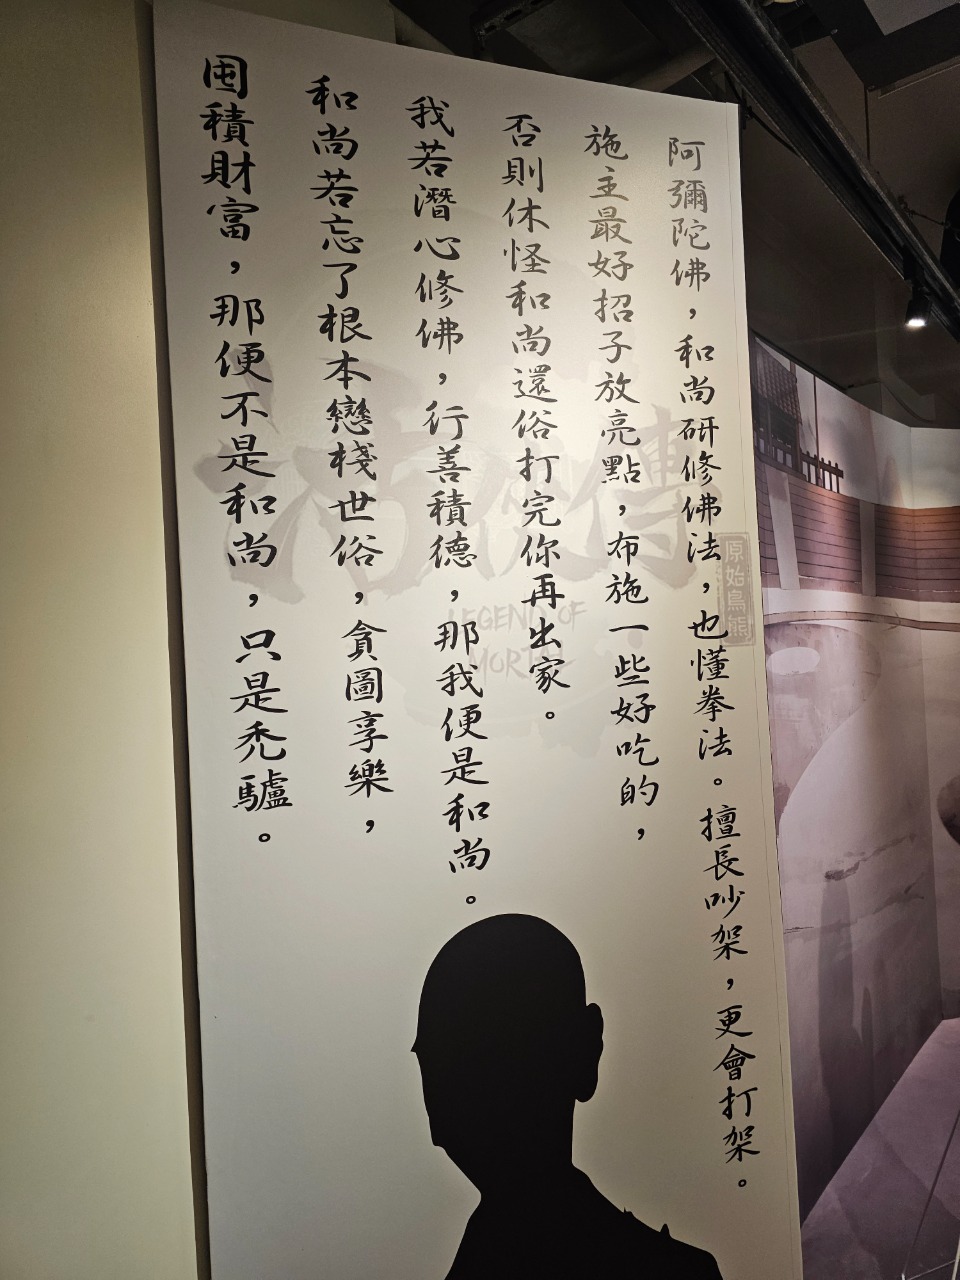 阿彌陀佛，和尚研修佛法，也懂拳法。擅長吵架，更會打架。
施主最好招子放亮點，布施一些好吃的，
否則休怪和尚還俗打完你再出家。
我若潛心修佛，行善積德，那我便是和尚。
和尚若忘了根本戀棧世俗，貪圖享樂，
囤積財富，那便不是和尚，只是禿驢。
活俠傳
LEGEND OF
MORTAL
原始鳥熊